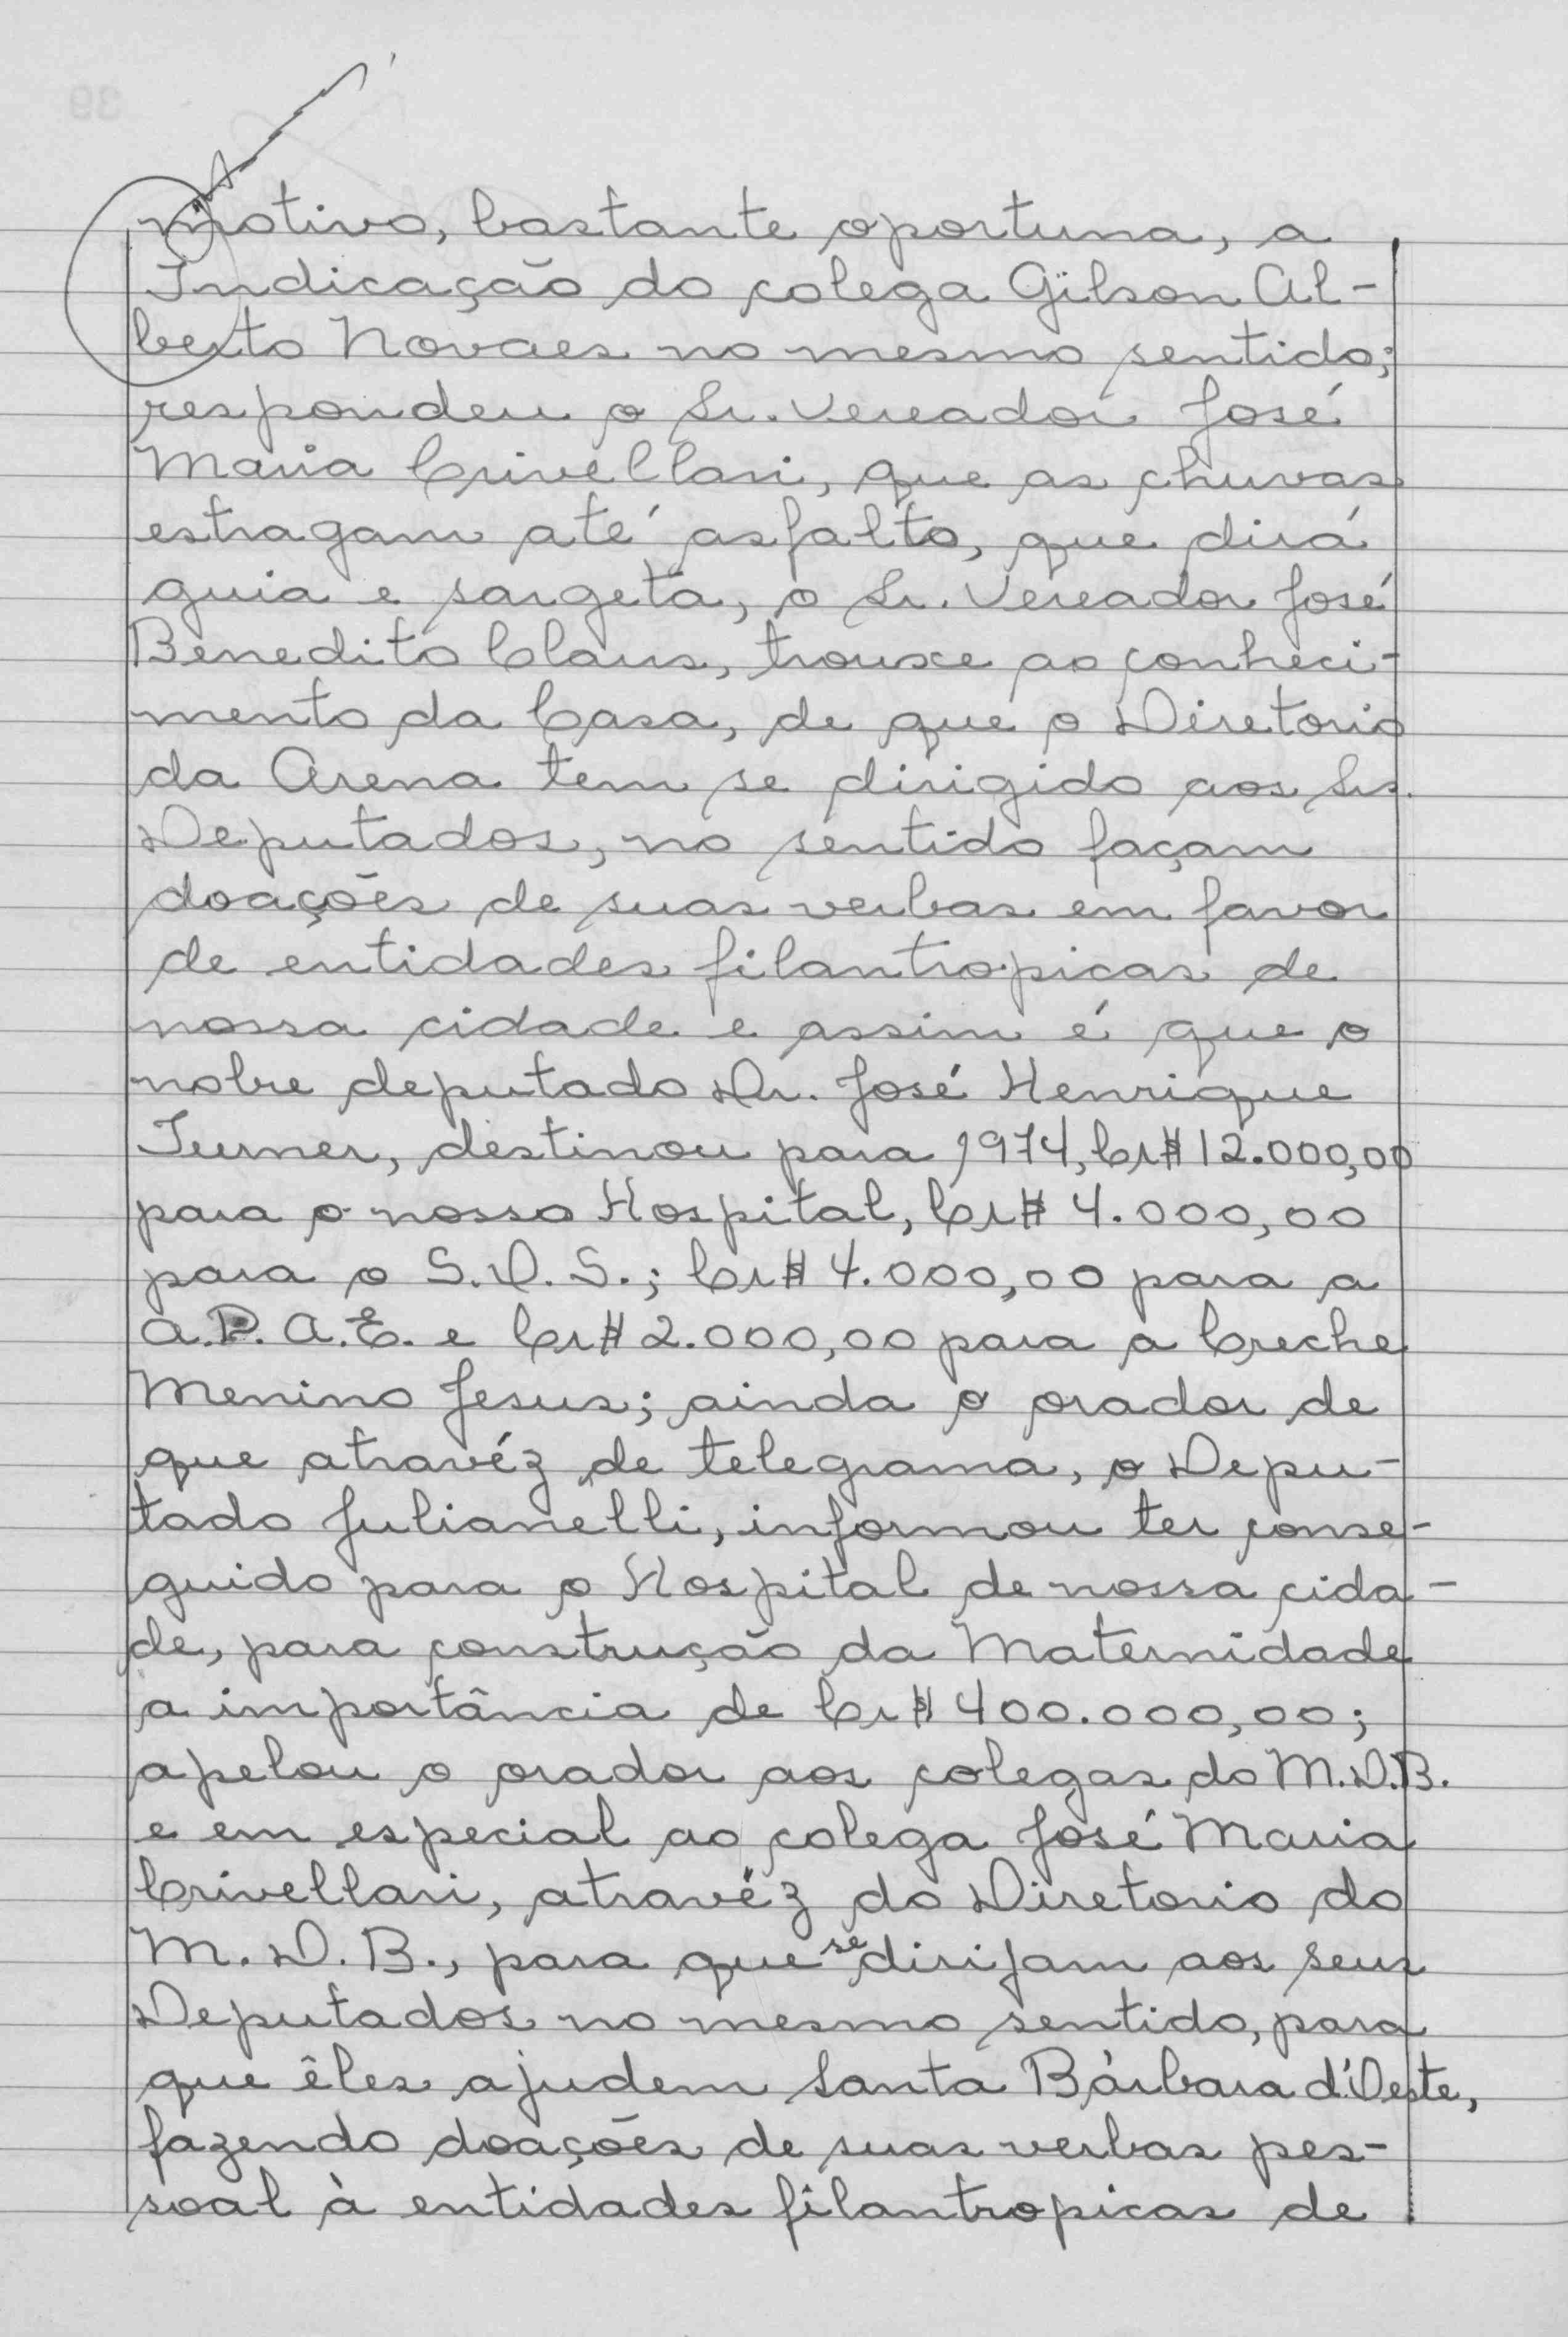 motivo, bastante oportuna, a
Indicação do colega Gilson Al-
berto Novaes no mesmo sentido;
respondeu o Sr. Vereador José
Maria Crivellari, que as chuvas
estragam até asfalto, que dirá
guia e sargeta, o Sr. Vereador José
Benedito Claus, trouxe ao conheci-
mento da Casa, de que o Diretorio
da Arena tem se dirigido aos Srs.
Deputados, no sentido façam
doações de suas verbas em favor
de entidades filantropicas de
nossa cidade e assim é que o
nobre deputado Dr. José Henrique
Turner, destinou para 1974, Cr$ 12.000,00
para o nosso Hospital, Cr$ 4.000,00
para o S.O.S.; Cr$ 4.000,00 para a
A.P.A.E. e Cr$ 2.000,00 para a Creche
Menino Jesus; ainda o orador de
que atravéz de telegrama, o Depu-
tado Julianelli, informou ter conse-
guido para o Hospital de nossa cida-
de, para construção da Maternidade
a importância de Cr$ 400.000,00;
apelou o orador aos colegas do M.D.B.
e em especial ao colega José Maria
Crivellari, atravéz do Diretorio do
M.D.B., para que se dirijam aos seus
Deputados no mesmo sentido, para
que êles ajudem Santa Bárbara d'Oeste,
fazendo doações de suas verbas pes-
soal à entidades filantropicas de